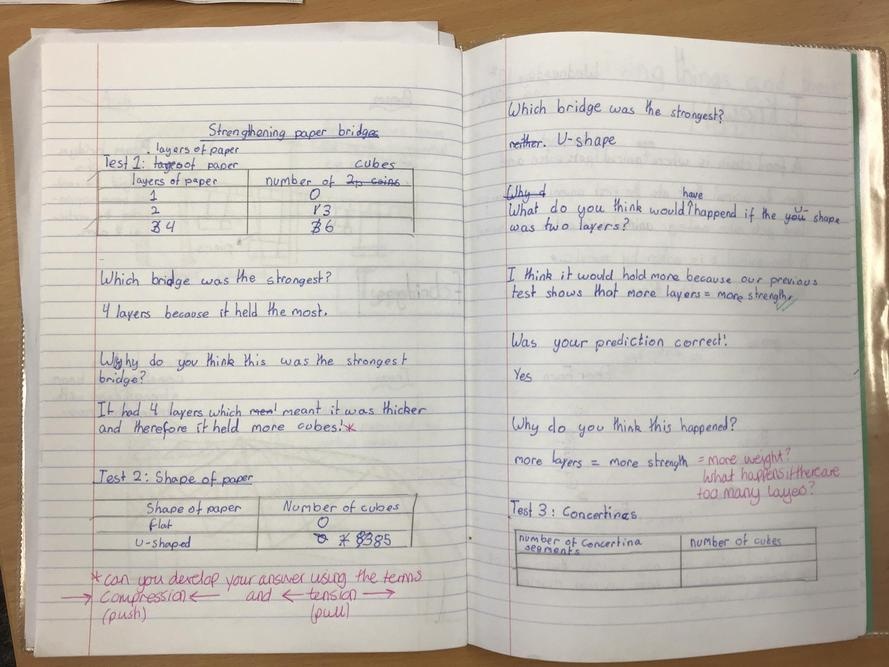 Strengthening paper bridges
layers of paper
Test 1: of paper cubes
layers of paper number of 2p coins
1 0
2 13
4 6
Which bridge was the strongest?
4 layers because it held the most.
Why do you think this was the strongest
bridge?
It had 4 layers which meant it was thicker
and therefore it held more cubes! *
Test 2: Shape of paper
Shape of paper Number of cubes
flat 0
U-shaped 85
* can you develop your answer using the terms
→ compression ← and ← tension →
(push) (pull)
Which bridge was the strongest?
neither. U-shape
Why d have
What do you think would happend if the U- shape
was two layers?
I think it would hold more because our previous
test shows that more layers = more strength.
Was your prediction correct?
Yes
Why do you think this happened?
more layers = more strength = more weight?
What happens if there are
too many layes?
Test 3: Concertinas
number of Concertina number of cubes
segments